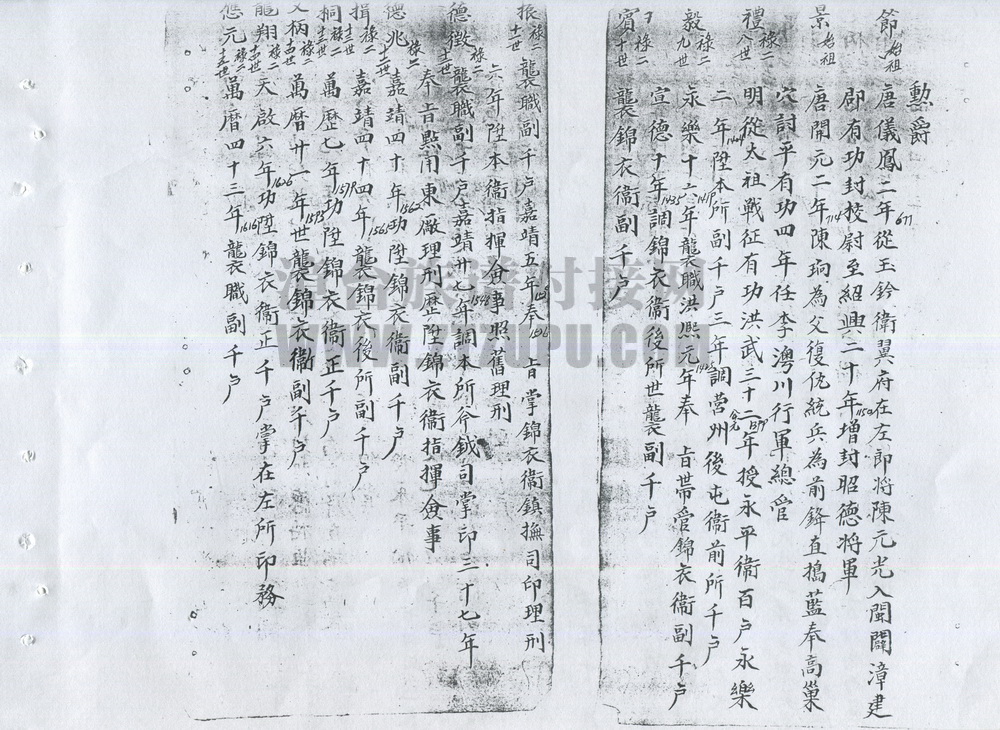 勲爵
節 始祖 唐儀鳳二年677從玉鈐衛翼府在左郎将陳元光入閩闢漳建
郡有功封校尉至紹興二十年1150增封昭德将軍
景 始祖 唐開元二年714陳珦為父復仇統兵為前鋒直搗藍奉高巢
穴討平有功四年任李澳川行軍總管
禮 祿二 八世 明從太祖戦征有功洪武三十二年1399授永平衛百户永樂
二年陞本所副千户三年調营州後屯衛前所千户
毅 祿二 九世 永樂十六年1418襲職洪熙元年1425奉 旨带管錦衣衛副千户
宣德十年1435調錦衣衛後所世襲副千户
賓 祿二 十世 襲錦衣衛副千户
振 祿二 十一世 襲職副千户嘉靖五年1526奉 旨掌錦衣衛鎮撫司印理刑
六年陞本衛指揮僉事照舊理刑
德徵 祿二 十二世 襲職副千户嘉靖廿七年1548調本所斧鉞司掌印三十七年
奉旨點用東厰理刑歷陞錦衣衛指揮僉事
德兆 祿二 十二世 嘉靖四十年1562功陞錦衣衛副千户
揖 祿二 十三世 嘉靖四十四年1565襲錦衣後所副千户
桐 祿二 十三世 萬歷七年1579功陞錦衣衛正千户
文柄 祿二 十四世 萬曆廿一年1593世襲錦衣衛副千户
龍翔 祿二 十四世 天啟六年1626功陞錦衣衛正千户掌在左所印務
愍元 祿二 十五世 萬曆四十三年1616襲職副千户
WWW.JZUPU.COM